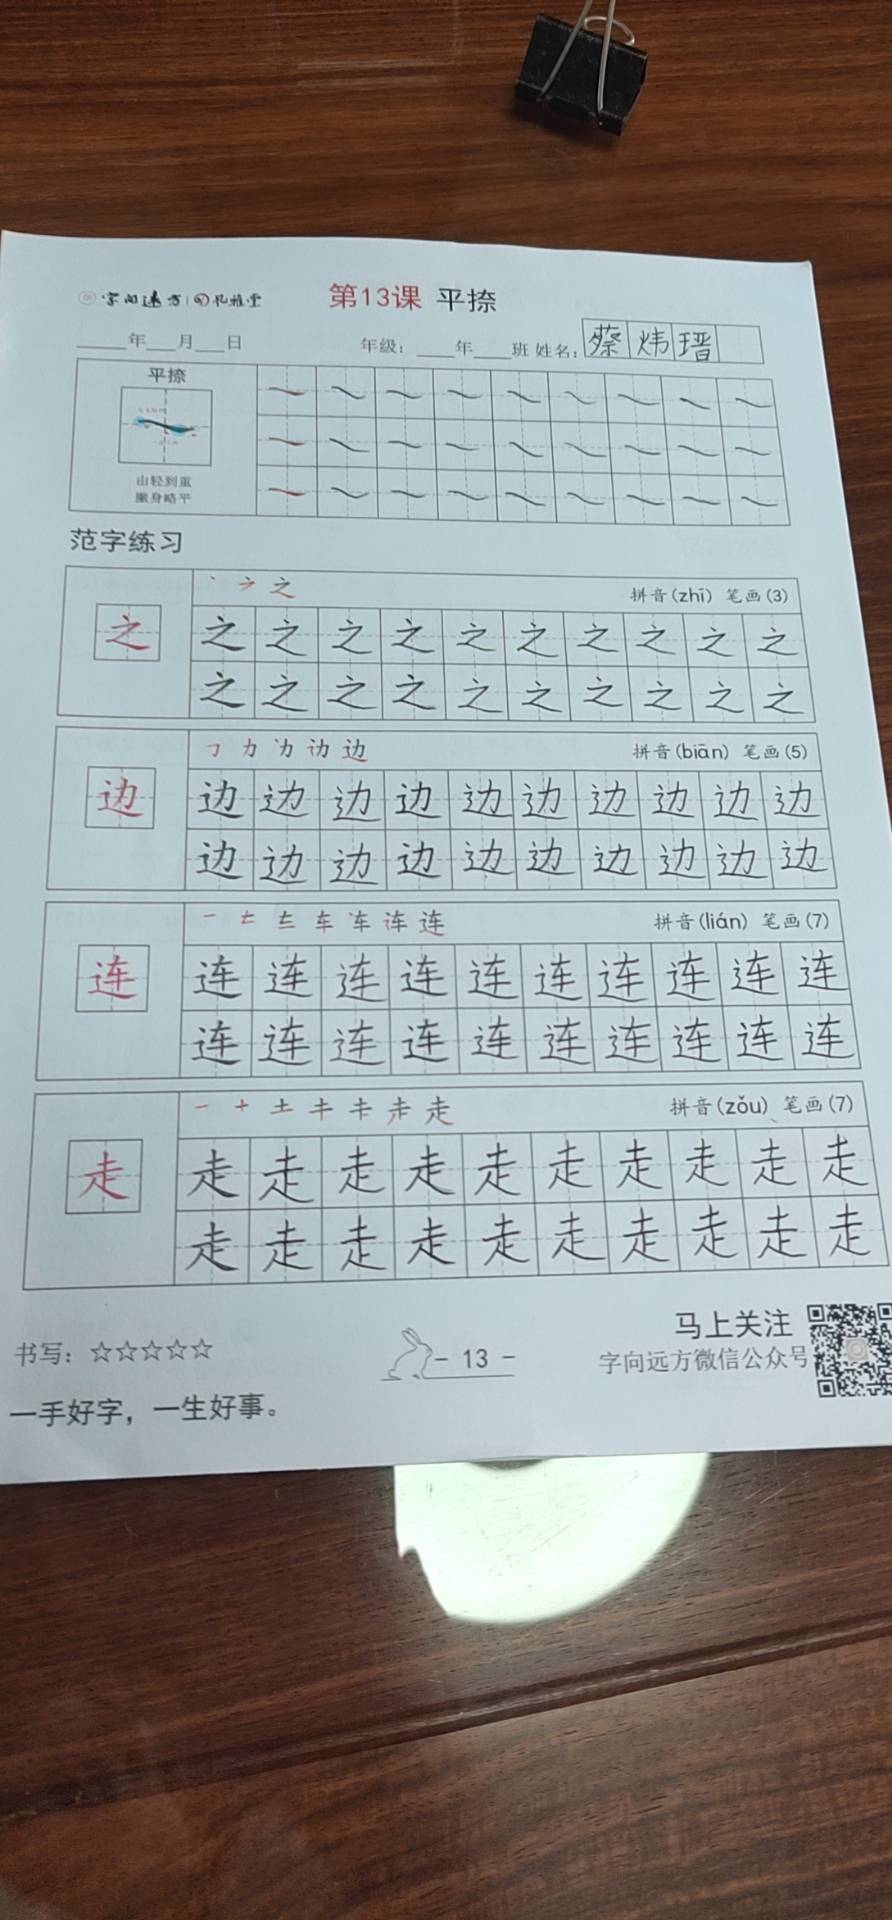 字向远方 孔雅堂
第13课 平捺
年 月 日 年级: 年 班 姓名: 蔡炜瑨
平捺
由轻到重
撇身略平
范字练习
丶 之 拼音(zhī) 笔画(3)
之 之 之 之 之 之 之 之 之 之 之
之 之 之 之 之 之 之 之 之 之
㇆ 力 边 拼音(biān) 笔画(5)
边 边 边 边 边 边 边 边 边 边 边
边 边 边 边 边 边 边 边 边 边
一 车 连 拼音(lián) 笔画(7)
连 连 连 连 连 连 连 连 连 连 连
连 连 连 连 连 连 连 连 连 连
一 十 土 走 拼音(zǒu) 笔画(7)
走 走 走 走 走 走 走 走 走 走 走
走 走 走 走 走 走 走 走 走 走
书写: ☆☆☆☆☆
- 13 -
马上关注
字向远方微信公众号
一手好字，一生好事。